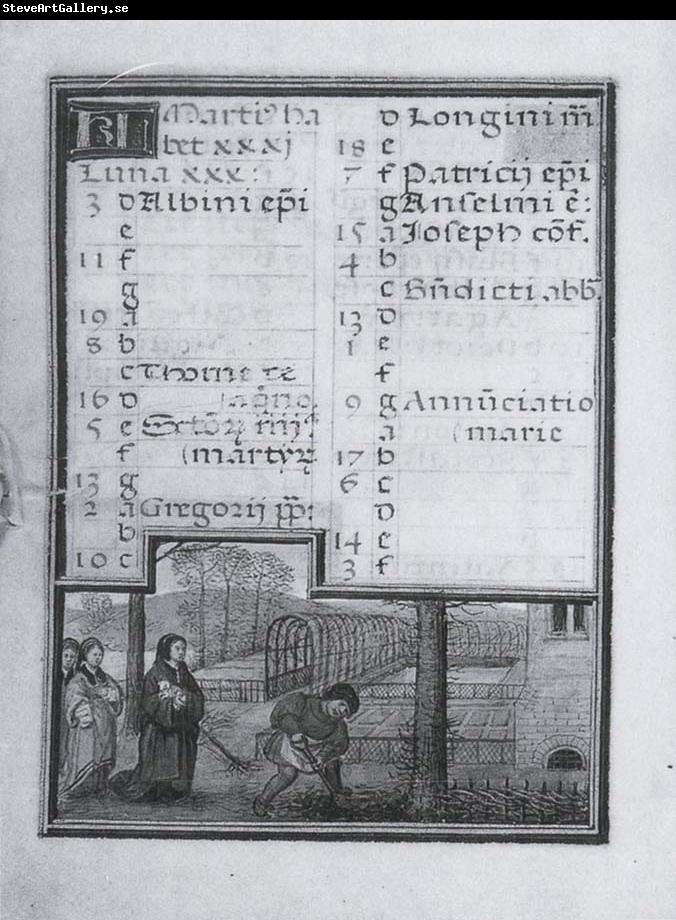 SteveArtGallery.se
KL Martiꝰ ha
bet xxxj
Luna xxx:
3 d Albini ep̄i
e
11 f
g
19 a
8 b
c Thome de
16 d aq̄no
5 e Sctōꝝ
f martyꝝ
13 g
2 a Gregorij pp̄:
b
10 c
d Longini m̄
18 e
7 f Patricij ep̄i
g Anselmi ē:
15 a Joseph cōf.
4 b
c Bn̄dicti abb̄
13 d
1 e
f
9 g Annūciatio
a marie
17 b
6 c
d
14 e
3 f